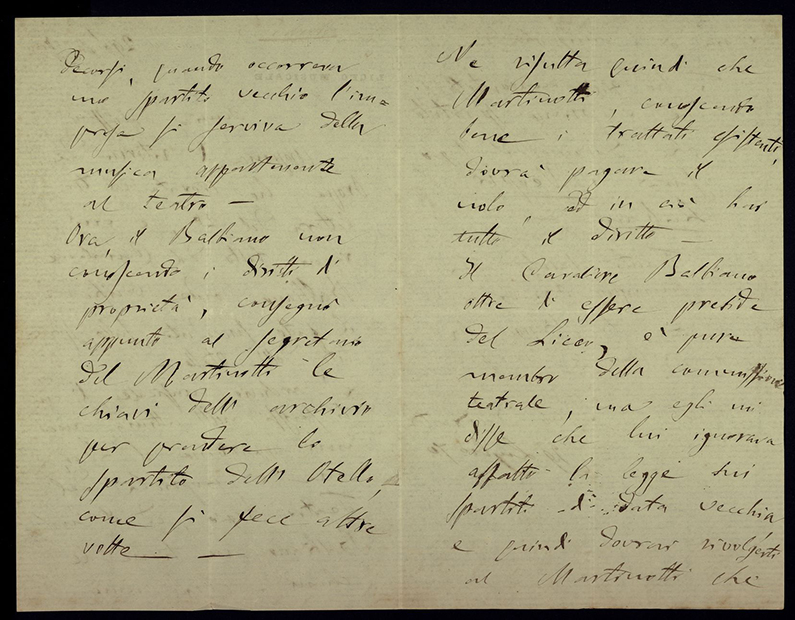 decorsi, quando occorreva
uno spartito vecchio l'im=
presa si serviva della
musica appartenente
al teatro —
Ora il Balbiano non
conoscendo i diritti di
proprietà, consegnò
appunto al segretario
del Martinotti le
chiavi dell'archivio
per prendere lo
spartito dell'Otello,
come si fece altre
volte — —
Ne risulta quindi che
Martinotti, conoscendo
bene i trattati esistenti,
dovrà pagare il
nolo, ed in ciò hai
tutto il diritto —
Il Cavaliere Balbiano
oltre di essere preside
del Liceo, è pure
membro della commissione
teatrale, ma egli mi
disse che lui ignorava
affatto la legge sui
spartiti di data vecchia
e quindi dovrai rivolgerti
al Martinotti che